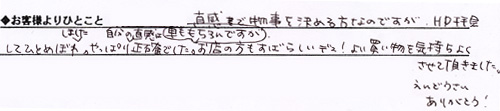 ◆お客様よりひとこと 直感で物事を決める方なのですが、HP拝見
しました 自分の直感は(車ももちろんですが)
してひとめぼれ。やっぱり正確でした。お店の方もすばらしいデス!よい買い物を気持ちよく
させて頂きました。
えんどうさん
ありがとう!